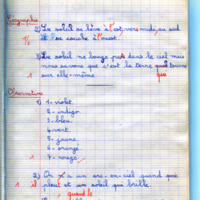 Géographie
2) Le soleil se lève à l'est, vers midi, au sud
1/2 il se couche à l'ouest.
Le soleil ne bouge pas dans le ciel mais
nous savons que c'est la terre qui tourne
1 sur elle-même que
Observation
1) 1 - violet
2 - indigo
3 - bleu
4 - vert
5 - jaune
6 - orangé
1 7 - rouge
2) On a un arc-en-ciel quand que
1 il pleut et un soleil qui brille.
quand le